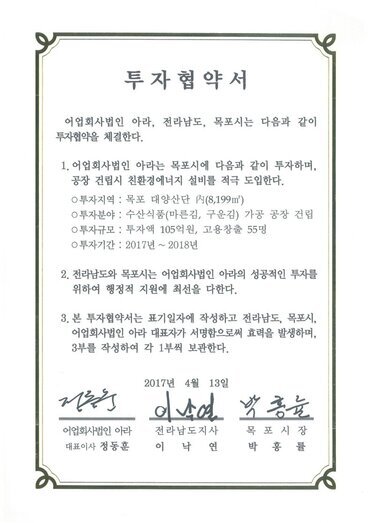 투자협약서
어업회사법인 아라, 전라남도, 목포시는 다음과 같이
투자협약을 체결한다.
1. 어업회사법인 아라는 목포시에 다음과 같이 투자하며,
공장 건립시 친환경에너지 설비를 적극 도입한다.
○투자지역 : 목포 대양산단 內(8,199㎡)
○투자분야 : 수산식품(마른김, 구운김) 가공 공장 건립
○투자규모 : 투자액 105억원, 고용창출 55명
○투자기간 : 2017년 ~ 2018년
2. 전라남도와 목포시는 어업회사법인 아라의 성공적인 투자를
위하여 행정적 지원에 최선을 다한다.
3. 본 투자협약서는 표기일자에 작성하고 전라남도, 목포시,
어업회사법인 아라 대표자가 서명함으로써 효력을 발생하며,
3부를 작성하여 각 1부씩 보관한다.
2017년 4월 13일
정동훈 이낙연 박홍률
어업회사법인 아라 전라남도지사 목포시장
대표이사 정동훈 이낙연 박홍률